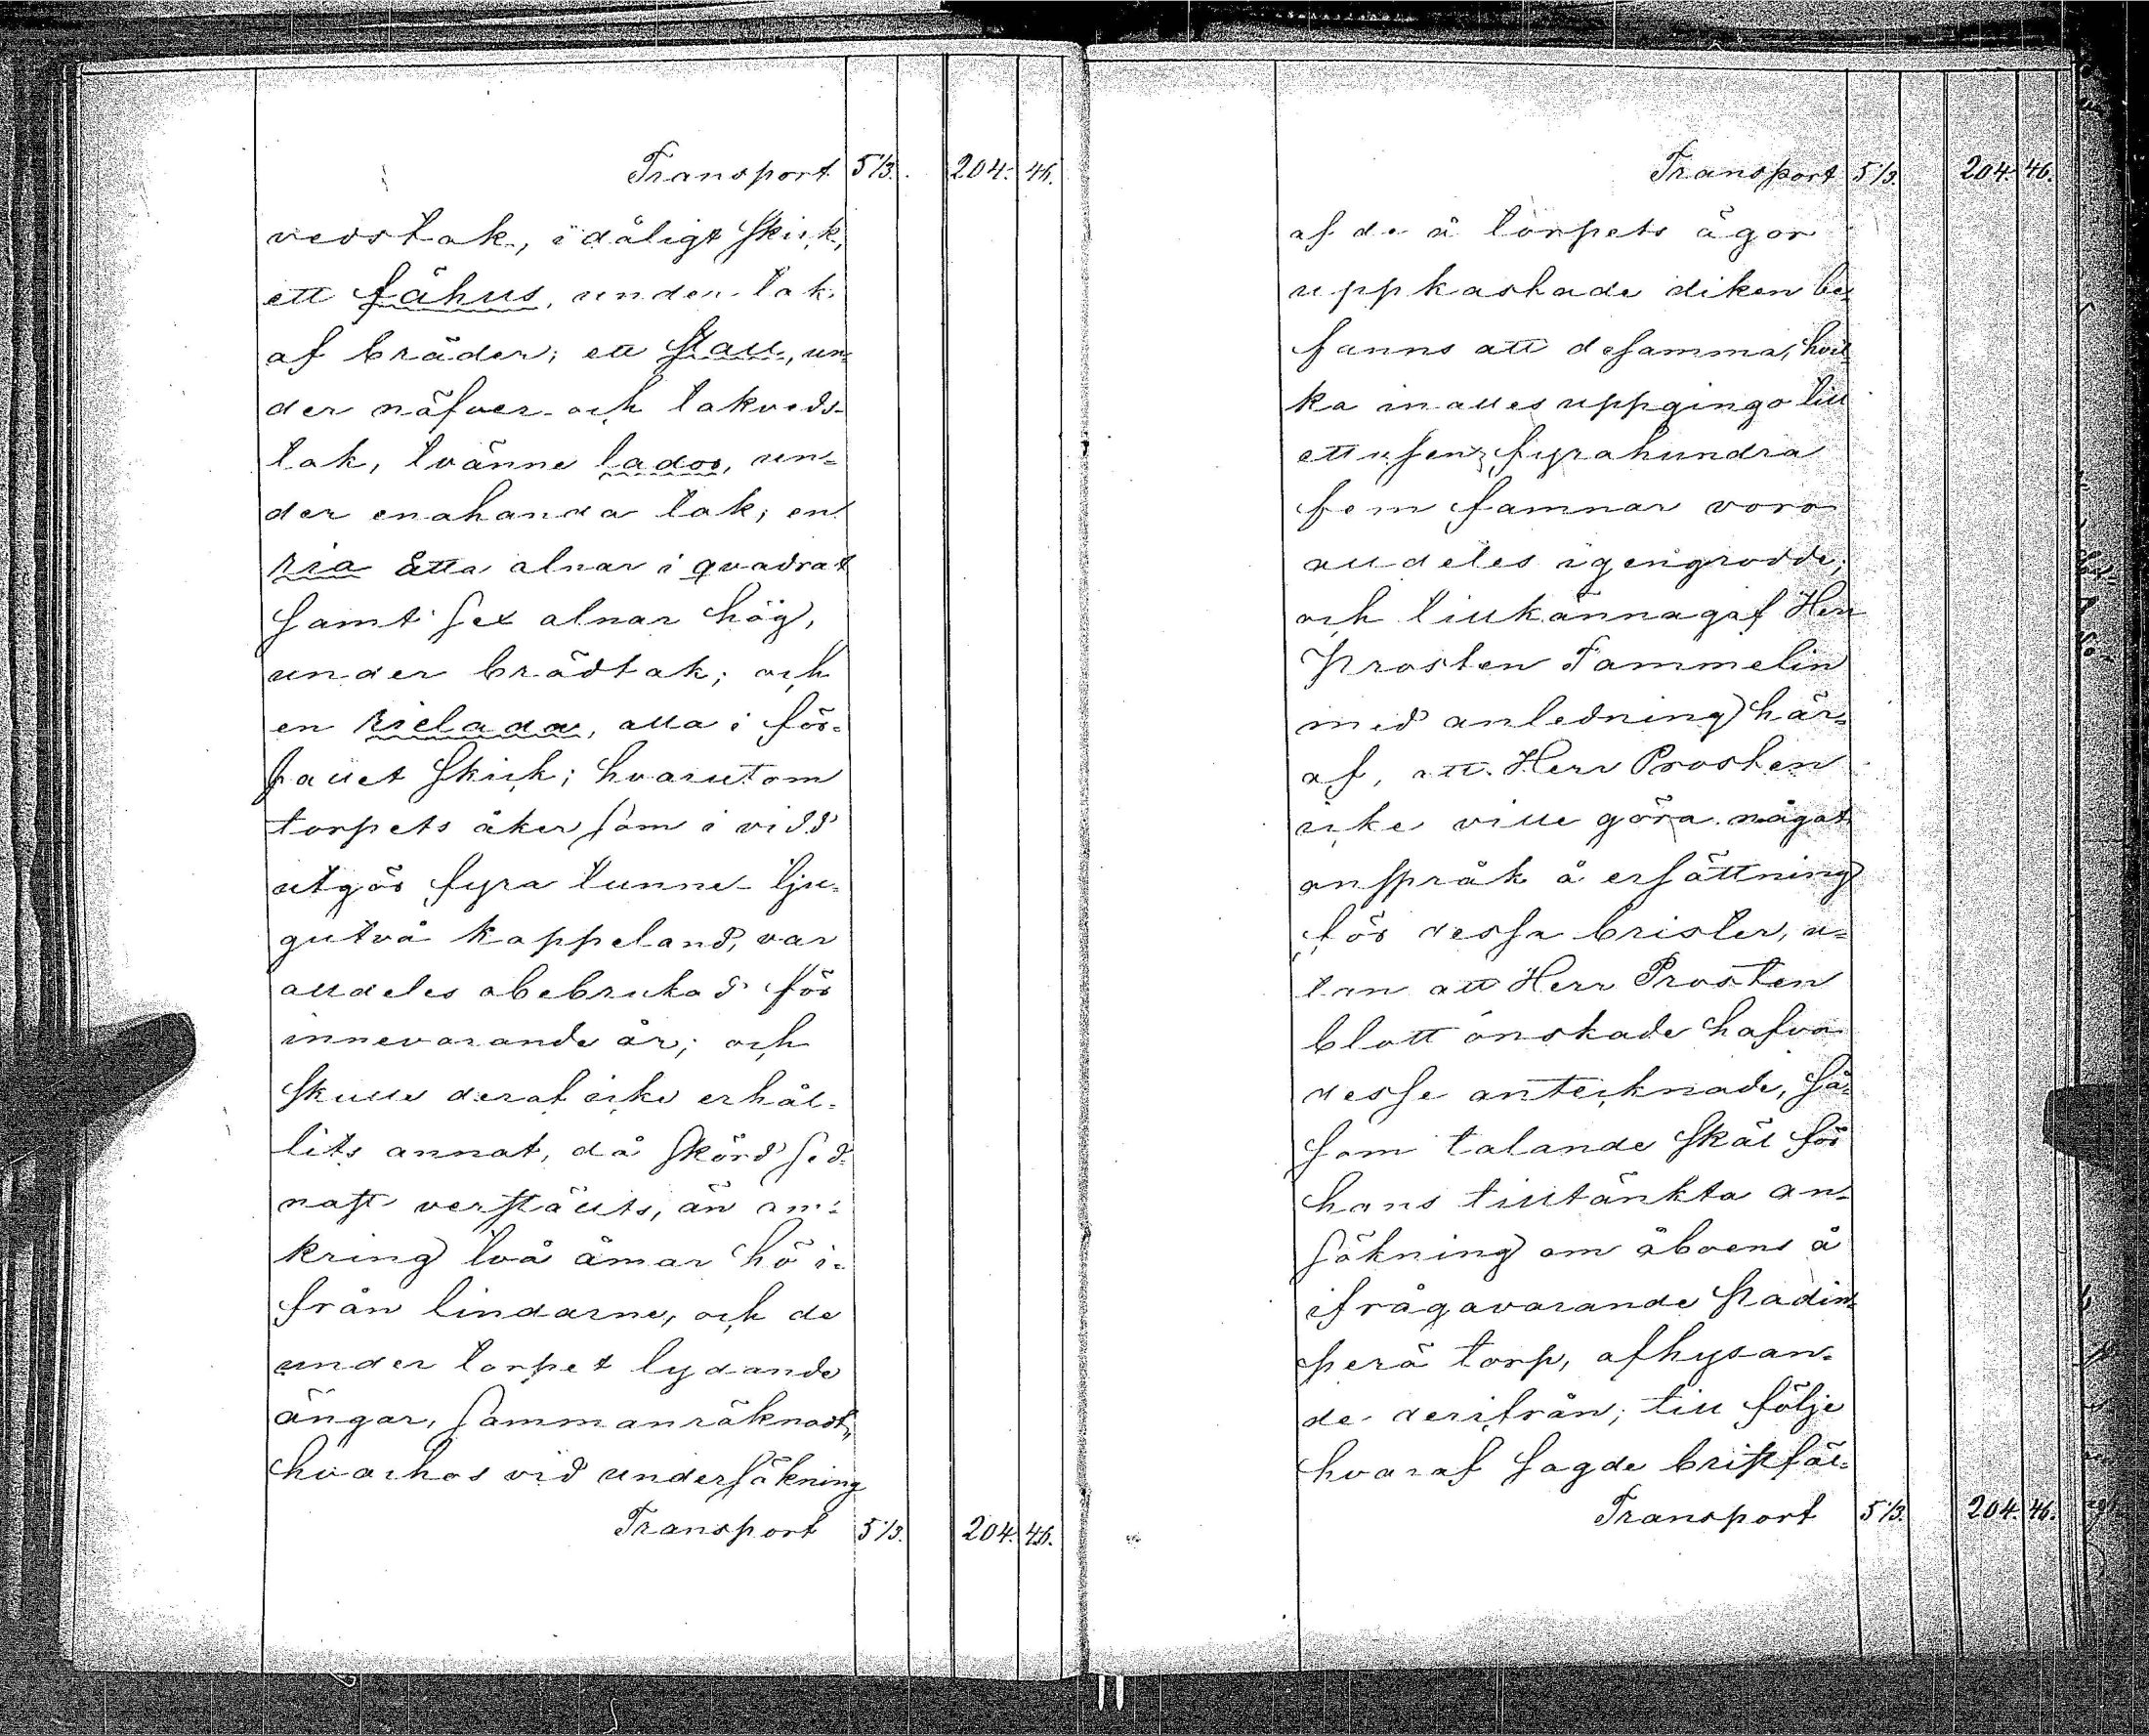 Transport 5 1/3. 204. 46.
vedstak, i dåligt skick,
ett fähus, under tak
af bräder; ett stall, un-
der näfver- och takveds-
tak, tvänne lador, un-
der enahanda tak; en
ria åtta alnar i quadrat
samt sex alnar hög,
under brädtak; och
en rielada, alla i för-
fallet skick; hvarutom
torpets åker som i vidd
utgör fyra tunne- tju-
gutvå kappeland, var
alldeles obebrukad för
innevarande år; och
skulle deraf icke erhål-
lits annat, då skörd sed-
nast verstälts, än om-
kring två åmar hö i-
från lindarne, och de
under torpet lydande
ängar, sammanräknadt,
hvarhos vid undersökning
Transport 5 1/3. 204. 46.
Transport 5 1/3. 204. 46.
af de å torpets ägor
uppkastade diken be-
fanns att desamma, hvil-
ka inalles uppgingo till
ettusen fyrahundra
fem famnar voro
alldeles igengrodde;
och tillkännagaf Herr
Prosten Tammelin
med anledning här-
af, att Herr Prosten
icke ville göra något
anspråk å ersättning
för dessa brister, u-
tan att Herr Prosten
blott önskade hafva
desse antecknade, så-
som talande skäl för
hans tilltänkta an-
sökning om åboens å
ifrågavarande Stadin-
perä torp, afhysan-
de derifrån; till följe
hvaraf sagde bristfäl-
Transport 5 1/3. 204. 46.